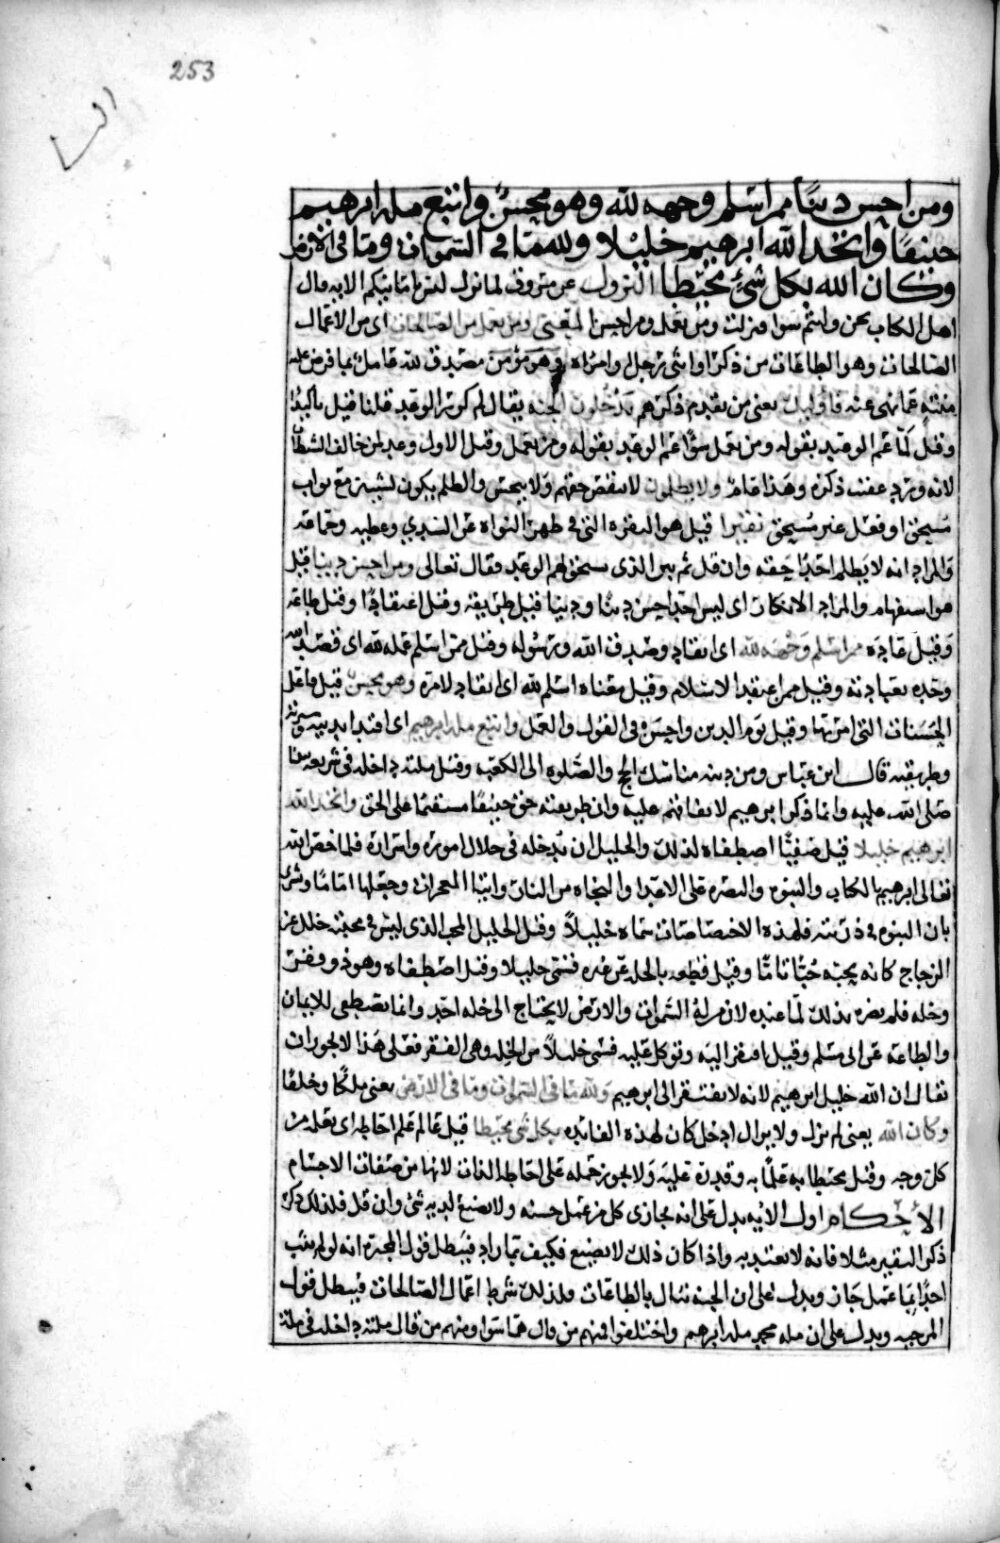 253
ومن احسن دينا ممن اسلم وجهه لله وهو محسن واتبع ملة ابرهيم
حنيفا واتخذ الله ابرهيم خليلا ولله ما في السموات وما في الارض
وكان الله بكل شئ محيطا النزول عن مسروق لما نزل ليس بامانيكم الايه قال
اهل الكتاب نحن وانتم سوا فنزلت ومن يعمل ومن احسن المعنى ومن يعمل من الصالحات اي من الاعمال
الصالحات وهو الطاعات من ذكر او انثى رجل وامراه وهو مؤمن مصدق لله عامل بما فرض عليه
منته عما نهى عنه فاوليك يعني من تقدم ذكرهم يدخلون الجنه يقال لم كرر الوعد قلنا قيل تاكيدا
وقيل كما عم الوعيد بقوله ومن يعمل سوا عم الوعد بقوله ومن يعمل وقيل الاول وعد لمن خالف الشيطان
لانه ورد عقيب ذكره وهذا عام ولا يظلمون لا ينقص حقهم ولا يبخس والظلم يكون لشيئين منع ثواب
مستحق او فعل غير مستحق نقيرا قيل هو النقره التي في ظهر النواه عن السدي وعطيه وجماعه
والمراد انه لا يظلم احدا حقه وان قل ثم بين الذي يستحق لهم الوعد فقال تعالى ومن احسن دينا قيل
هو استفهام والمراد الانكار اي ليس احد احسن دينا ودينا قيل طريقه وقيل اعتقادا وقيل طاعه
وقيل عاده ممن اسلم وجهه لله اي انقاد وصدق الله ورسوله وقيل ممن اسلم عمله لله اي قصد الله
وحده بعبادته وقيل ممن اعتقد الاسلام وقيل معناه استسلم لله اي انقاد لامره وهو محسن قيل فاعل
الحسنات التي امر بها وقيل يوم الدين واحسن في القول والعمل واتبع ملة ابرهيم اي اقتدا بدينه وسيرته
وطريقته قال ابن عباس ومن دينه مناسك الحج والصلوه الى الكعبه وقيل ملته داخله في شريعه نبينا
صلى الله عليه وانما ذكر ابرهيم لاتفاقهم عليه وان طريقته حق حنيفا مستقيما على الحق واتخذ الله
ابرهيم خليلا قيل صفيا اصطفاه لذلك والخليل ان يدخله في خلال اموره واسراره فلما خص الله
تعالى ابرهيم بالكتاب والنبوه والنصره على الاعدا والنجاه من النار وايتا المعجزات وجعله اماما وشرفه
بان النبوه في ذريته فلهذه الاختصاصات سماه خليلا وقيل الخليل المحب الذي ليس في محبته خلل عن
الزجاج كانه يحبه حبا تاما وقيل بالخله عن غيره فسمي خليلا وقيل اصطفاه وهو ذو فقر
وخله فلم يضره بذلك لما عنده لان من له السموات والارض لا يحتاج الى خله احد وانما يصطفي للايمان
والطاعه عن ابي مسلم وقيل افتقر اليه وتوكل عليه فسمي خليلا من الخله وهي الفقر فعلى هذا لا يجوز ان
يقال ان الله خليل ابرهيم لانه لا يفتقر الى ابرهيم ولله ما في السموات وما في الارض يعني ملكا وخلقا
وكان الله يعني لم يزل ولا يزال ادخل كان لهذه الفائده بكل شي محيطا قيل عالم علم احاطه اي يعلم من
كل وجه وقيل محيطا به علما به وقدره عليه ولا يجوز حمله على احاطه الذات لانها من صفات الاجسام
الاحكام اول الايه يدل على انه مجازي كل من عمل حسنه ولا يضيع لديه شئ وان قل فلذلك ذكر
ذكر النقير مثلا فانه لا يعتد به واذا كان ذلك لا يضيع فكيف بما زاد فيبطل قول المجبره انه لو لم يثب
احدا بما عمل جاز ويدل على ان الجنه تنال بالطاعات ولذلك شرط اعمال الصالحات فيبطل قول
المرجيه ويدل على ان مله محمد مله ابرهيم واختلفوا فمنهم من قال هما سوا ومنهم من قال ملته داخله في ملة